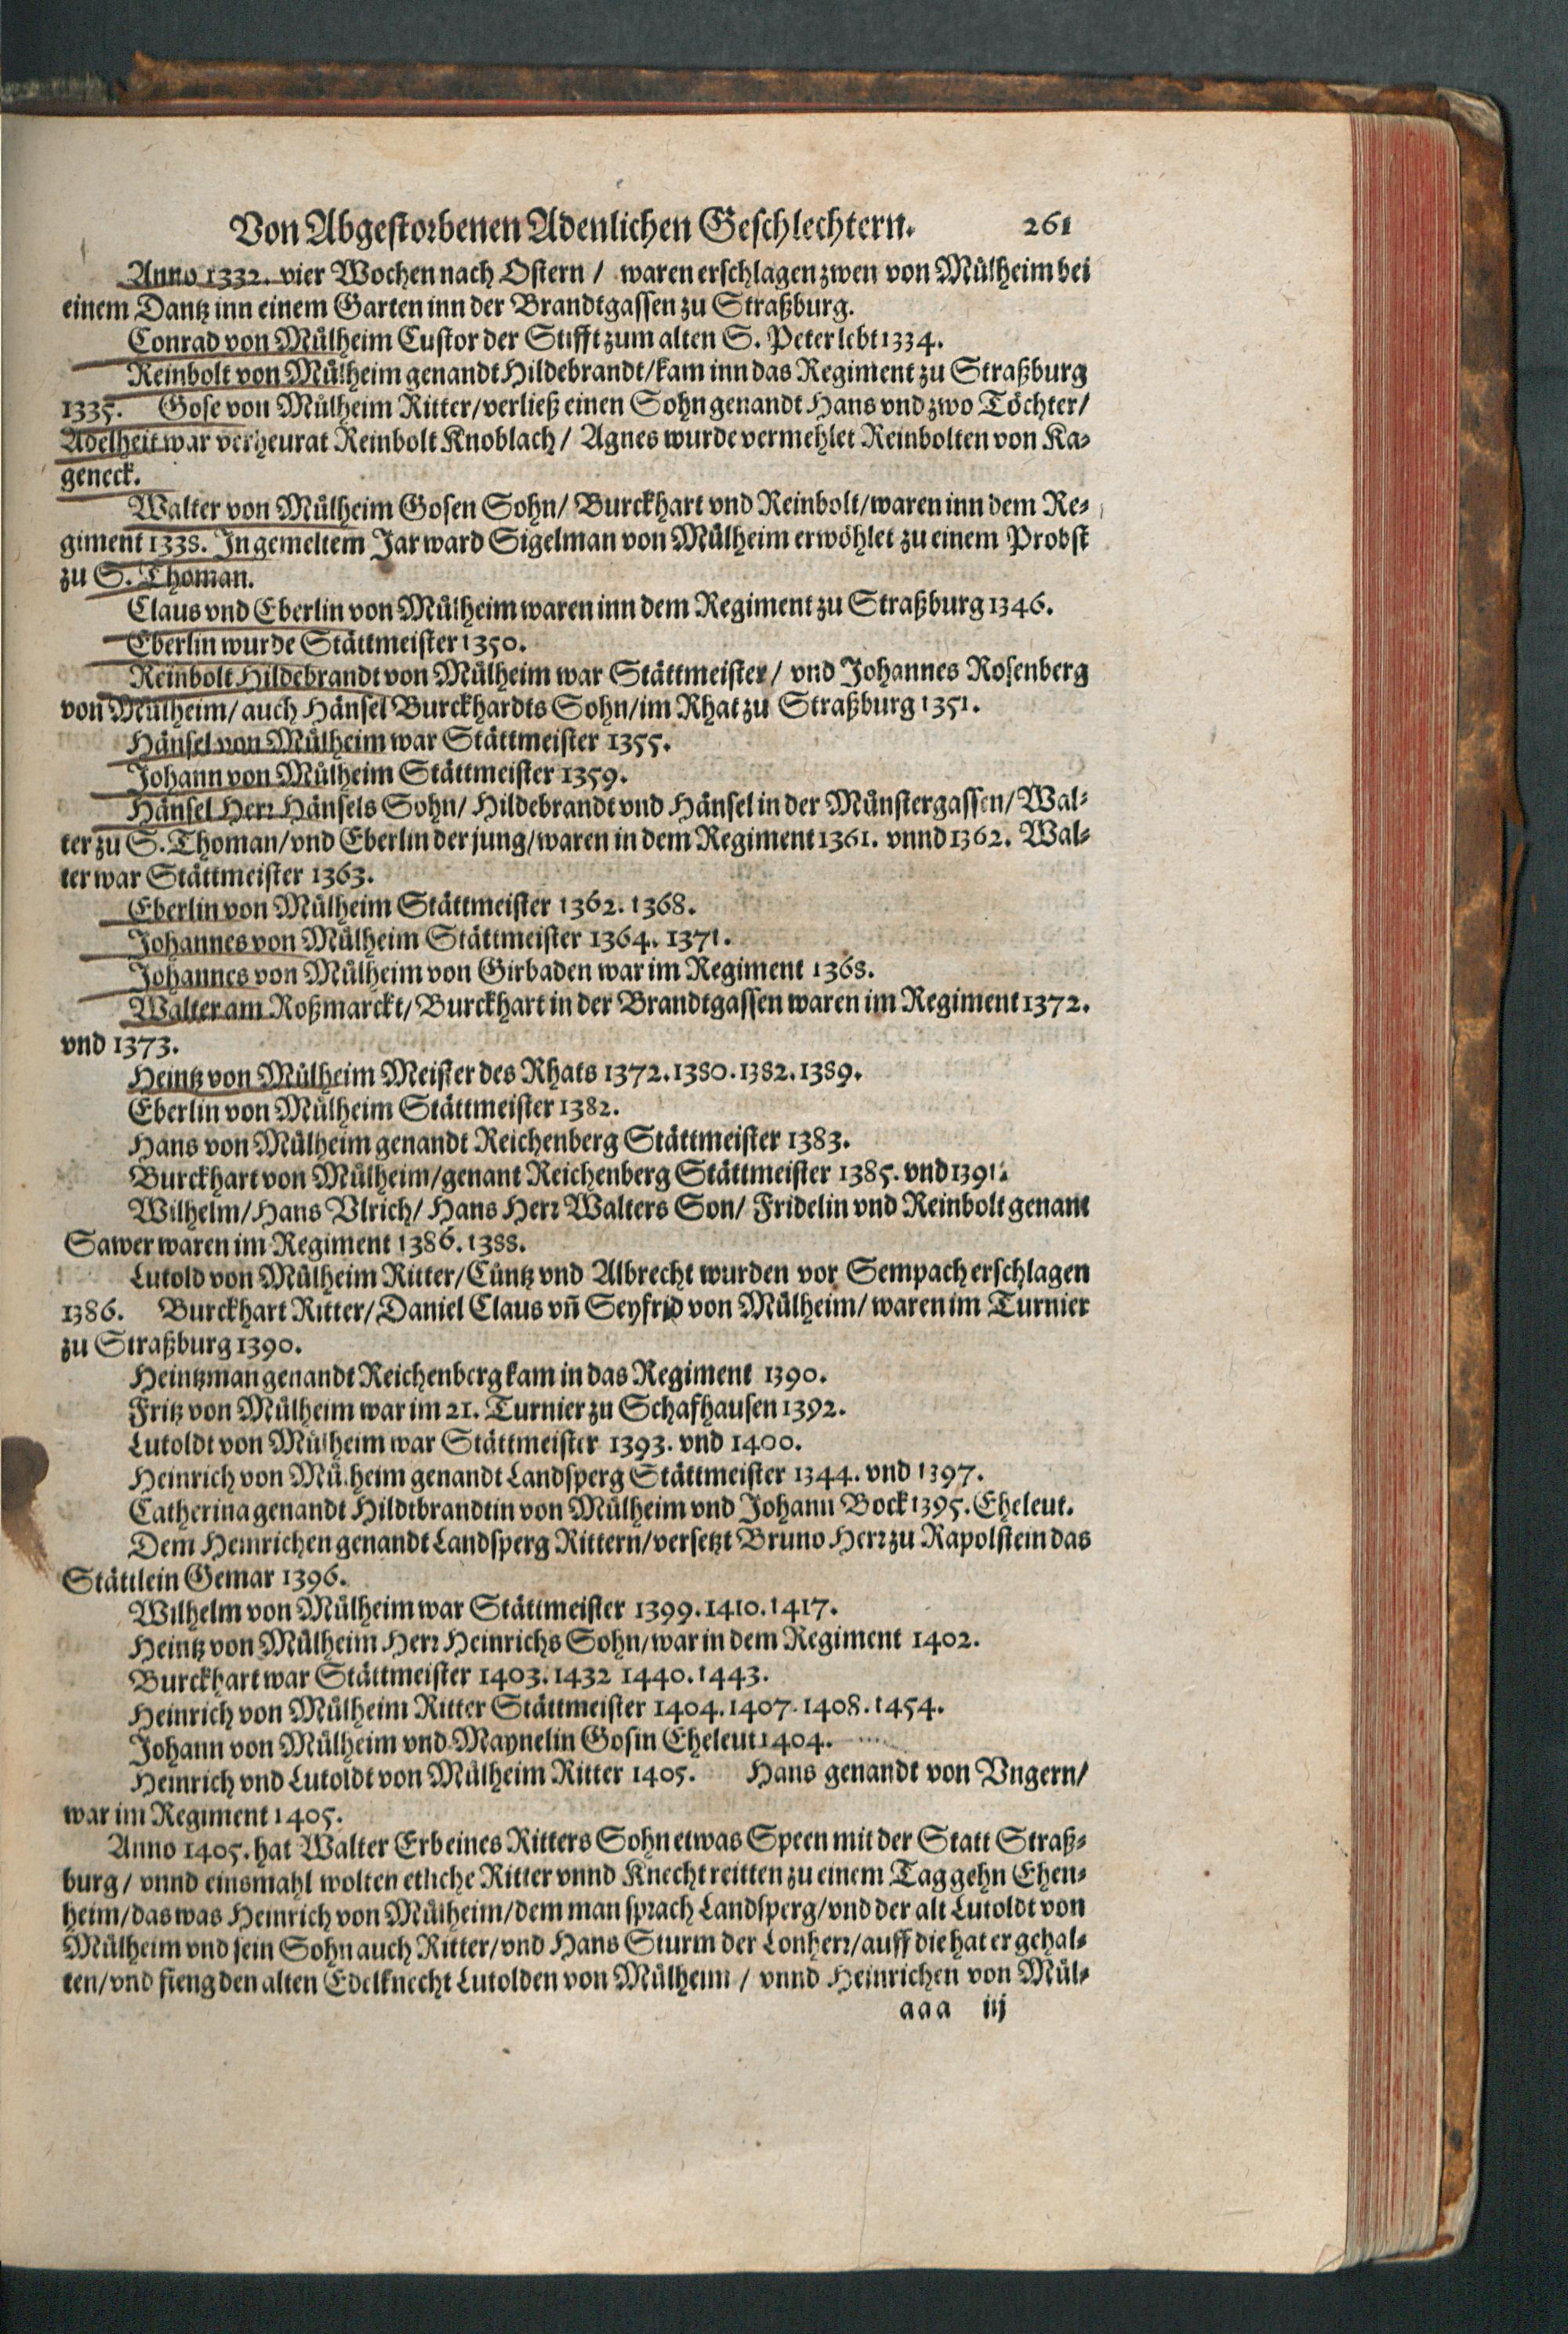 Von Abgestorbenen Adenlichen Geschlechtern. 261
Anno 1332. vier Wochen nach Ostern / waren erschlagen zwen von Mülheim bei
einem Dantz inn einem Garten inn der Brandtgassen zu Straßburg.
Conrad von Mülheim Custor der Stifft zum alten S. Peter lebt 1334.
Reinbolt von Mülheim genandt Hildebrandt/kam inn das Regiment zu Straßburg
1335. Gose von Mülheim Ritter/verließ einen Sohn genandt Hans vnd zwo Töchter/
Adelheit war verheurat Reinbolt Knoblach/ Agnes wurde vermehlet Reinbolten von Ka-
geneck.
Walter von Mülheim Gosen Sohn/ Burckhart vnd Reinbolt/waren inn dem Re-
giment 1338. In gemeltem Jar ward Sigelman von Mülheim erwöhlet zu einem Probst
zu S. Thoman.
Claus vnd Eberlin von Mülheim waren inn dem Regiment zu Straßburg 1346.
Eberlin wurde Stättmeister 1350.
Reinbolt Hildebrandt von Mülheim war Stättmeister/ vnd Johannes Rosenberg
von Mülheim/auch Hänsel Burckhardts Sohn/im Rhat zu Straßburg 1351.
Hänsel von Mülheim war Stättmeister 1355.
Johann von Mülheim Stättmeister 1359.
Hänsel Herr Hänsels Sohn/ Hildebrandt vnd Hänsel in der Münstergassen/ Wal-
ter zu S. Thoman/vnd Eberlin der jung/waren in dem Regiment 1361. vnnd 1362. Wal-
ter war Stättmeister 1363.
Eberlin von Mülheim Stättmeister 1362. 1368.
Johannes von Mülheim Stättmeister 1364. 1371.
Johannes von Mülheim von Girbaden war im Regiment 1368.
Walter am Roßmarckt/ Burckhart in der Brandtgassen waren im Regiment 1372.
vnd 1373.
Heintz von Mülheim Meister des Rhats 1372. 1380. 1382. 1389.
Eberlin von Mülheim Stättmeister 1382.
Hans von Mülheim genandt Reichenberg Stättmeister 1383.
Burckhart von Mülheim/genant Reichenberg Stättmeister 1385. vnd 1391.
Wilhelm/Hans Vlrich/ Hans Herr Walters Son/ Fridelin vnd Reinbolt genant
Sawer waren im Regiment 1386. 1388.
Lutold von Mülheim Ritter/Cüntz vnd Albrecht wurden vor Sempach erschlagen
1386. Burckhart Ritter/Daniel Claus vñ Seyfrid von Mülheim/ waren im Turnier
zu Straßburg 1390.
Heintzman genandt Reichenberg kam in das Regiment 1390.
Fritz von Mülheim war im 21. Turnier zu Schafhausen 1392.
Lutoldt von Mülheim war Stättmeister 1393. vnd 1400.
Heinrich von Mülheim genandt Landsperg Stättmeister 1344. vnd 1397.
Catherina genandt Hildtbrandtin von Mülheim vnd Johann Bock 1395. Eheleut.
Dem Heinrichen genandt Landsperg Rittern/versetzt Bruno Herr zu Rapolstein das
Stättlein Gemar 1396.
Wilhelm von Mülheim war Stättmeister 1399. 1410. 1417.
Heintz von Mülheim Herr Heinrichs Sohn/war in dem Regiment 1402.
Burckhart war Stättmeister 1403. 1432 1440. 1443.
Heinrich von Mülheim Ritter Stättmeister 1404. 1407. 1408. 1454.
Johann von Mülheim vnd Maynelin Gosin Eheleut 1404.
Heinrich vnd Lutoldt von Mülheim Ritter 1405. Hans genandt von Vngern/
war im Regiment 1405.
Anno 1405. hat Walter Erb eines Ritters Sohn etwas Speen mit der Statt Straß-
burg/ vnnd einsmahl wolten etliche Ritter vnnd Knecht reitten zu einem Tag gehn Ehen-
heim/das was Heinrich von Mülheim/dem man sprach Landsperg/vnd der alt Lutoldt von
Mülheim vnd sein Sohn auch Ritter/vnd Hans Sturm der Lonherr/auff die hat er gehal-
ten/vnd fieng den alten Edelknecht Lutolden von Mülheim / vnnd Heinrichen von Mül-
aaa iij